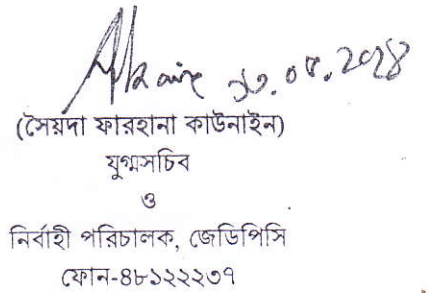 (সৈয়দা ফারহানা কাউনাইন)
যুগ্মসচিব
ও
নির্বাহী পরিচালক, জেডিপিসি
ফোন-৪৮১২২২৩৭